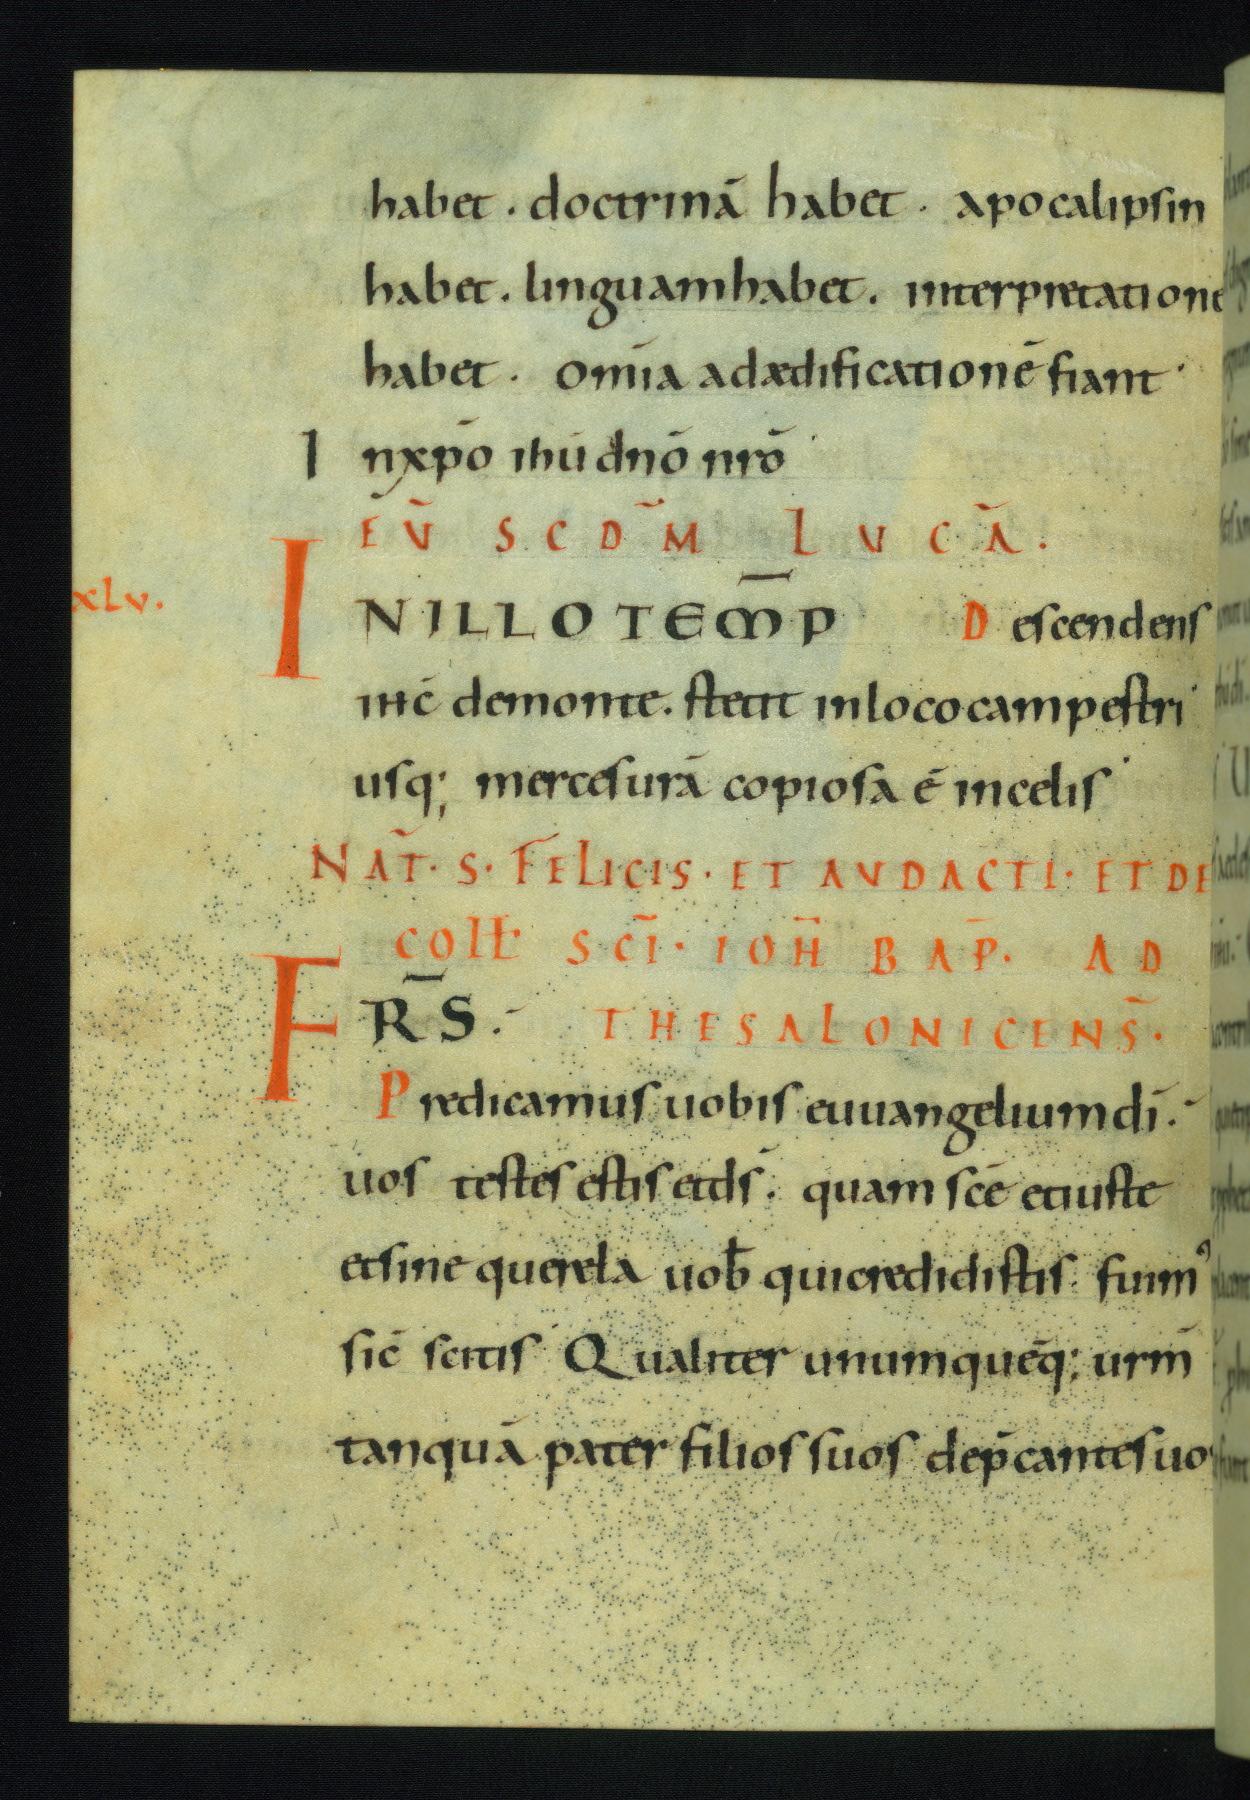 habet . doctrinā habet . apocalipsin
habet . linguam habet . interpretatione
habet . om̄ia ad ædificationē fiant
In xp̄o ih̄u dn̄o nr̄o
EṼ SCD̃M LUCÃ .
xlv. IN ILLO TEM̄P Descendens
ih̄c̄ de monte . stetit in loco campestri
usq; merces urā copiosa ē in celis
NAT̃ . S . FELICIS . ET AUDACTI . ET DE
COLL̃ SCĨ . IOH̃ BAP̄ . AD
FR̄S . THESALONICENS̃ .
Predicamus uobis euuangelium dī .
uos testes estis et ds̄ . quam scē et iuste
et sine querela uob̄ qui credidistis . fuim᾿
sic̄ scitis Qualiter unumquēq; ur̄m
tanquā pater filios suos dep̄cantes uo